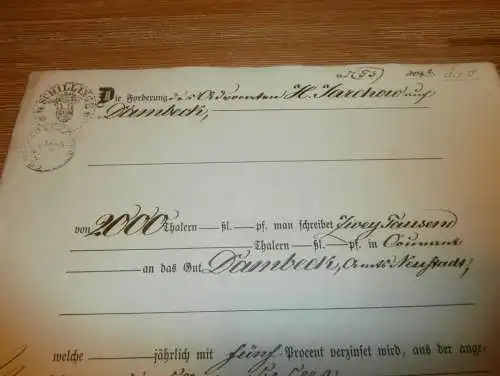 SCHILLING
Die Forderung des Advocaten H. Jarchow auf
Dambeck,
von 2000 Thalern — ßl. — pf. man schreibet Zwey Tausend
Thalern — ßl. — pf. in Courant
an das Gut Dambeck, Amts Neustadt,
welche jährlich mit fünf Procent verzinset wird, aus der ange-